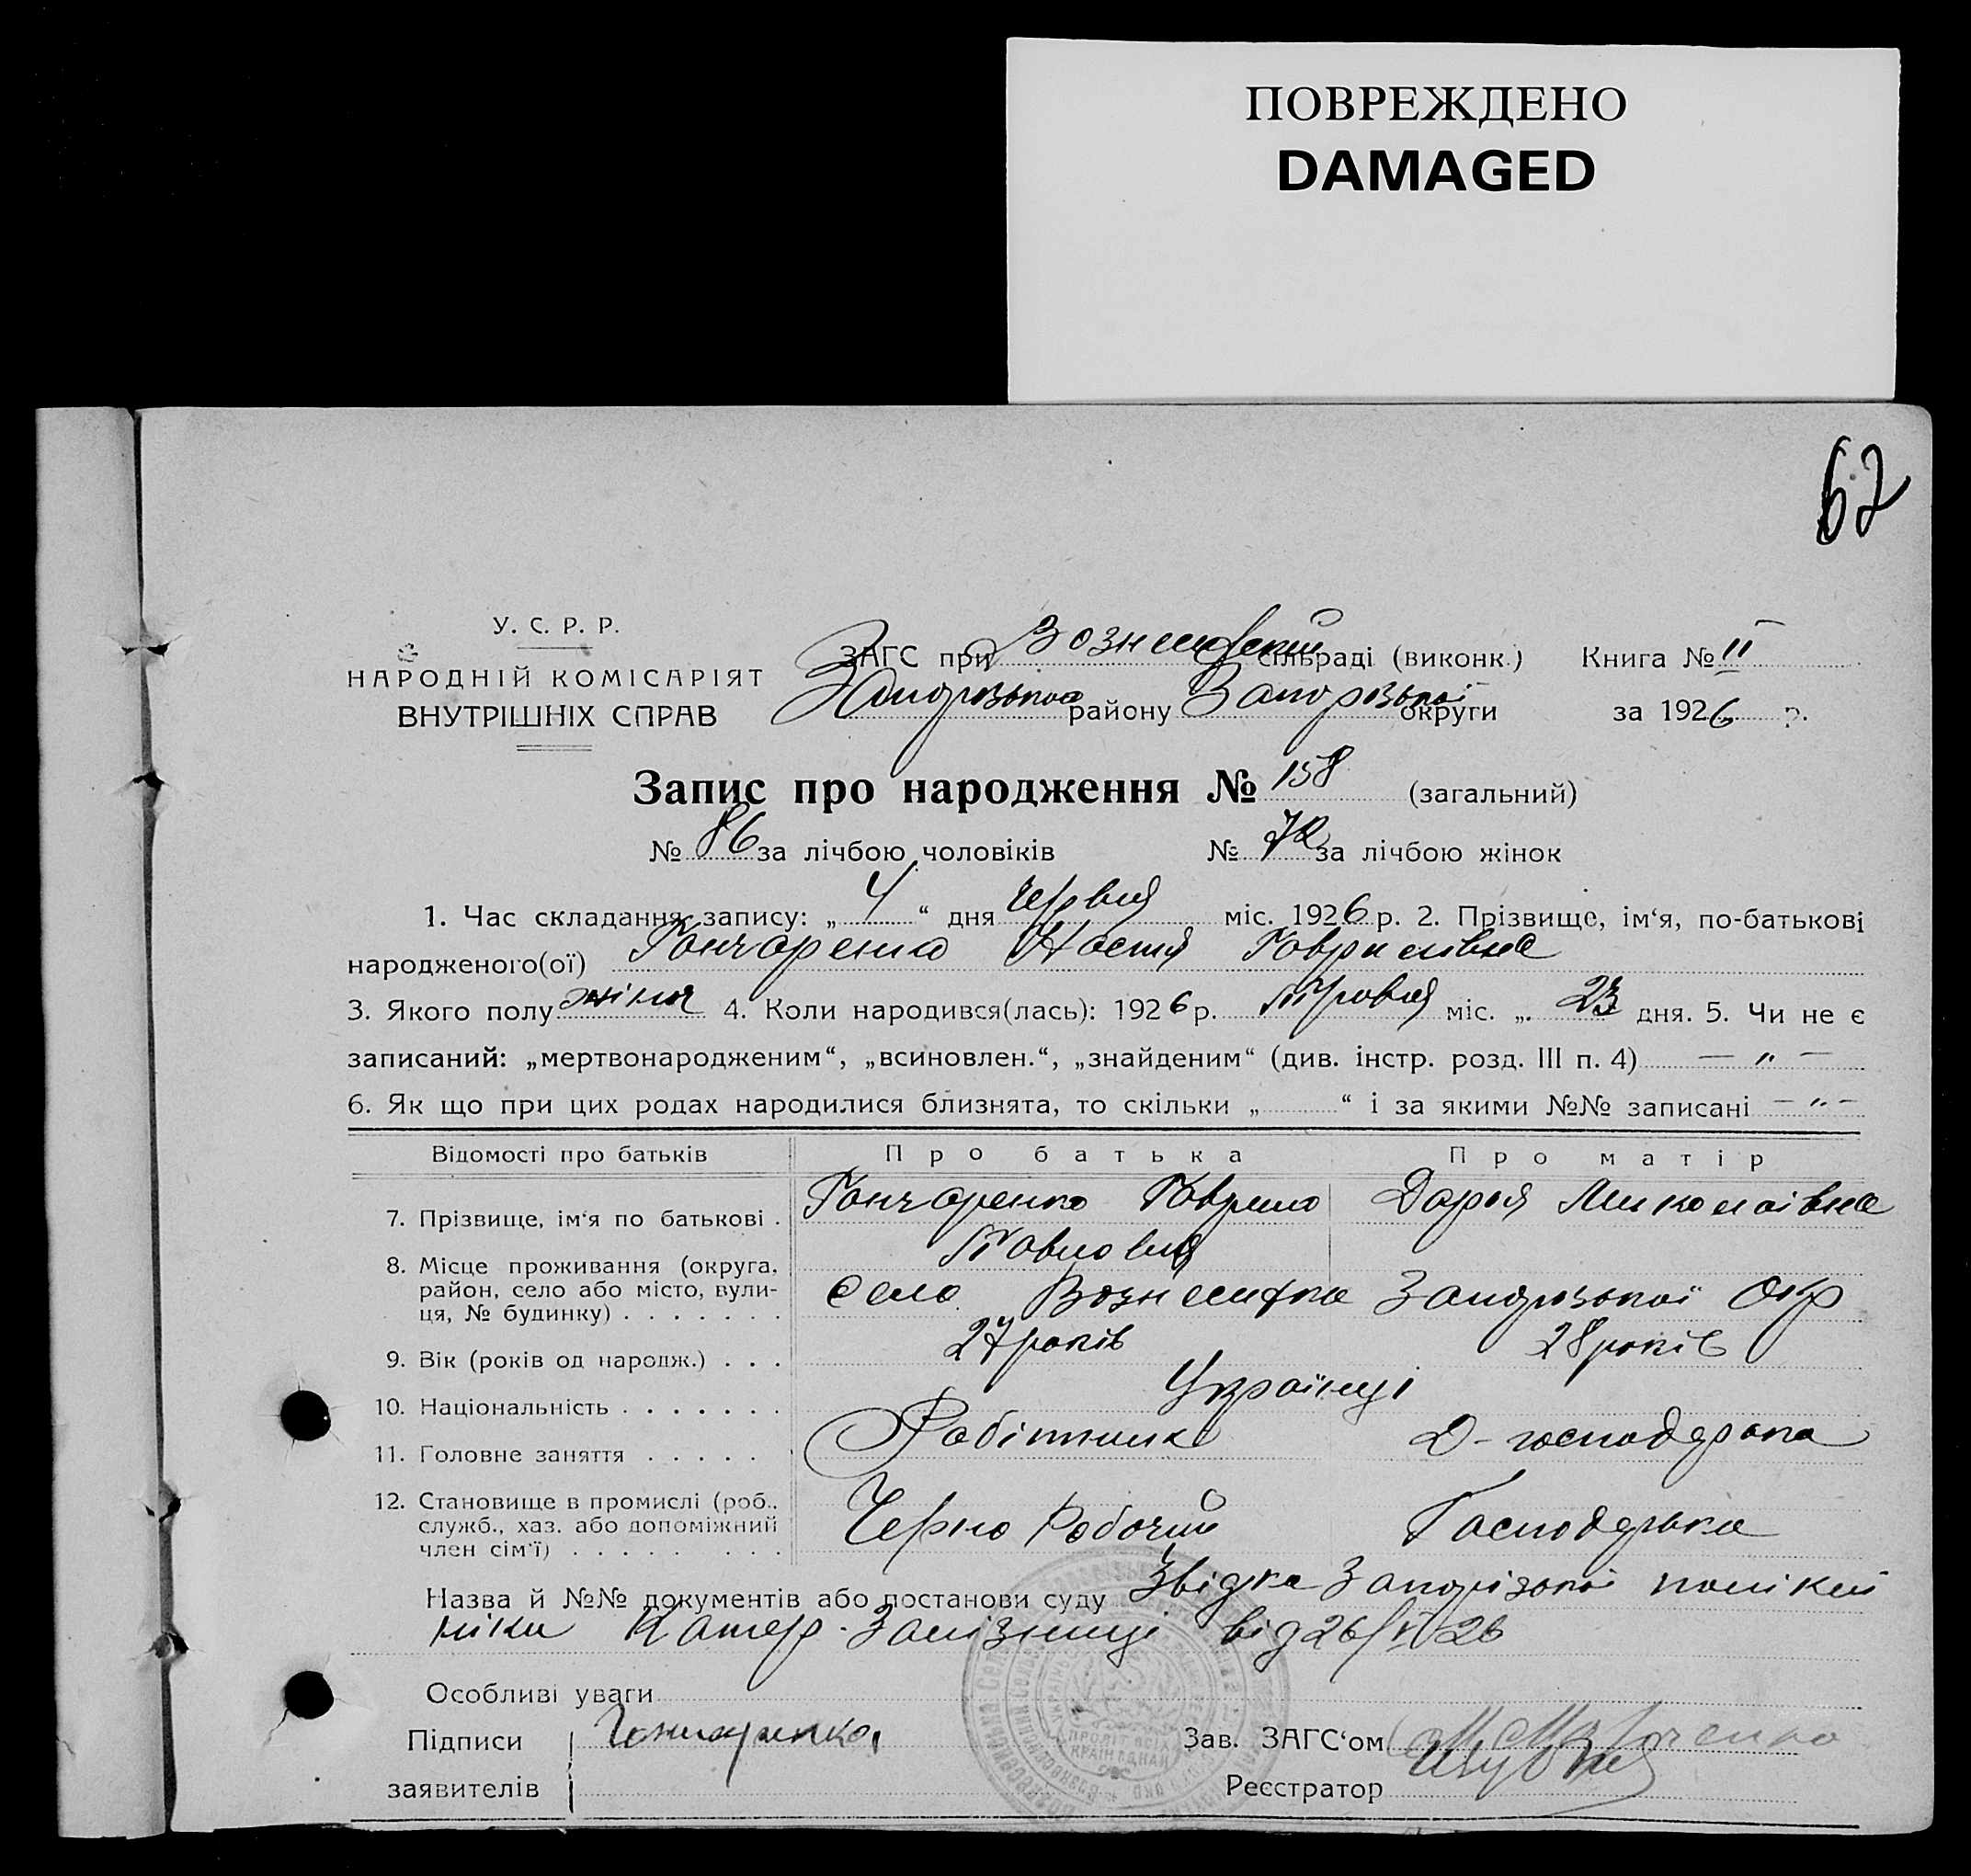 ПОВРЕЖДЕНО
DAMAGED
62
У. С. Р. Р.
НАРОДНІЙ КОМІСАРІЯТ
ВНУТРІШНІХ СПРАВ
ЗАГС при Вознесенській сільраді (виконк.) Книга № II
Запорізького району Запорізької округи за 1926 р.
Запис про народження № 158 (загальний)
№ 86 за лічбою чоловіків № 72 за лічбою жінок
1. Час складання запису: „ 4 “ дня Червня міс. 1926 р. 2. Прізвище, ім‘я, по-батькові
народженого(ої) Гончаренко Настя Гаврилівна
3. Якого полу жіноч 4. Коли народився(лась): 1926 р. Травня міс. „ 23 дня. 5. Чи не є
записаний: „мертвонародженим“, „всиновлен.“, „знайденим“ (див. інстр. розд. III п. 4) — „ —
6. Як що при цих родах народилися близнята, то скільки „ “ і за якими №№ записані — „ —
Відомості про батьків Про батька Про матір
7. Прізвище, ім‘я по батькові . Гончаренко Гаврило Дарья Миколаівна
Павлович
8. Місце проживання (округа, район, село або місто, вулиця, № будинку) . . . . . . . село Вознесенка Запорізької Окр
9. Вік (років од народж.) . . . 27 років 28 років
10. Національність . . . . . . . Українці
11. Головне заняття . . . . . Робітник Д-господарка
12. Становище в промислі (роб., служб., хаз. або допоміжний член сім‘ї) . . . . . . . . Черно Робочий Господарька
Назва й №№ документів або постанови суду Звідка Запорізької поліклі
ніки Катер. Залізниці від 26/V 26
Особливі уваги
Підписи Гончаренко
заявителів
Зав. ЗАГС‘ом
Реєстратор